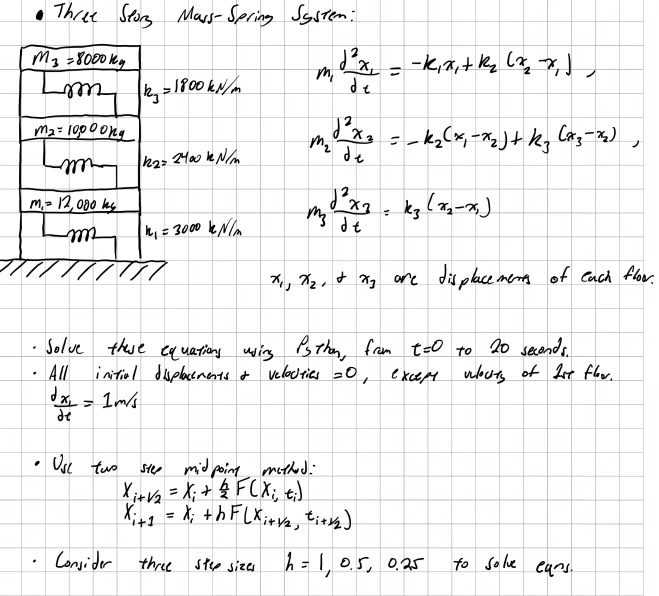 • Three Story Mass-Spring System:
m₃ = 8000 kg
k₃ = 1800 kN/m
m₂ = 10,000 kg
k₂ = 2400 kN/m
m₁ = 12,000 kg
k₁ = 3000 kN/m
m₁ d²x₁/dt = -k₁x₁ + k₂(x₂ - x₁),
m₂ d²x₂/dt = -k₂(x₁ - x₂) + k₃(x₃ - x₂),
m₃ d²x₃/dt = k₃(x₂ - x₁)
x₁, x₂, & x₃ are displacements of each floor.
· Solve these equations using Python, from t=0 to 20 seconds.
· All initial displacements & velocities = 0, except velocity of 1st floor.
dx₁/dt = 1 m/s
• Use two step midpoint method:
X_{i+1/2} = X_i + h/2 F(X_i, t_i)
X_{i+1} = X_i + h F(X_{i+1/2}, t_{i+1/2})
· Consider three step sizes h = 1, 0.5, 0.25 to solve eqns.